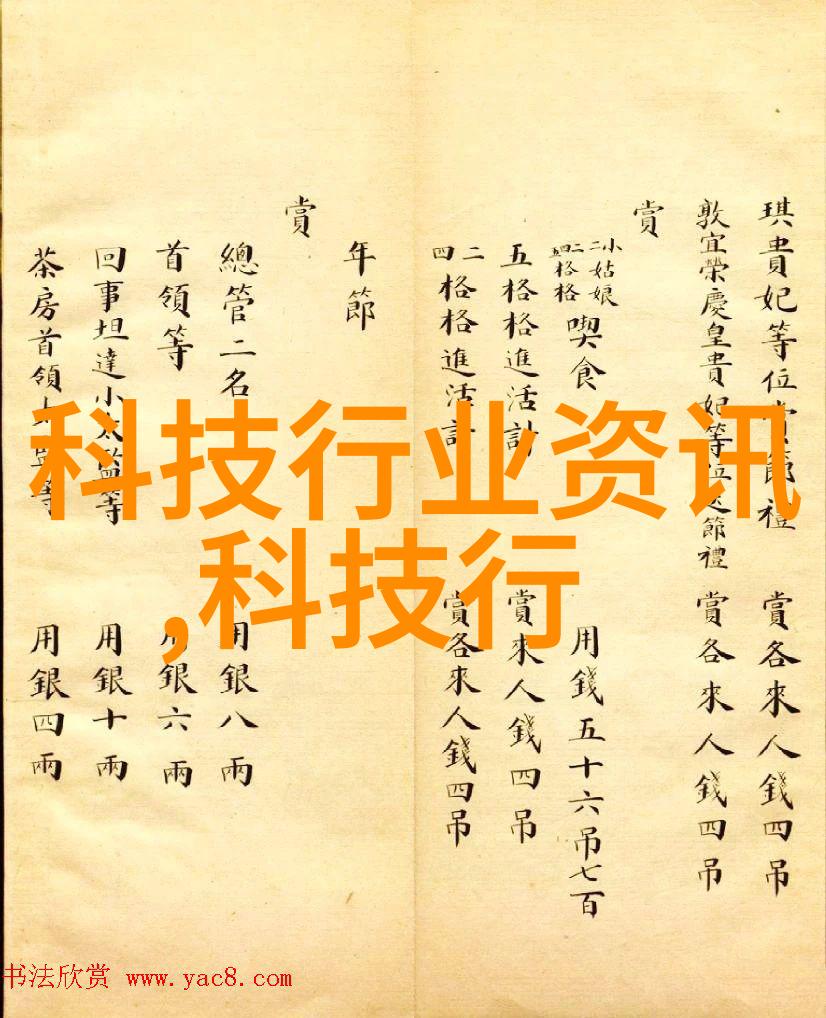 琪貴妃等位賞節禮 賞各來人錢四吊
敦宜榮慶皇貴妃等位送節禮 賞各來人錢四吊
賞
小姑娘
二
二格格
四格格
喫食 用錢五十六吊七百
五格格進活計 賞來人錢四吊
二
四
格格進活計 賞各來人錢四吊
年節
賞
總管二名 用銀八兩
首領等 用銀六兩
回事坦達小太監等 用銀十兩
茶房首領太監等 用銀四兩
科技行业资讯
,科技行
书法欣赏 www.yac8.com